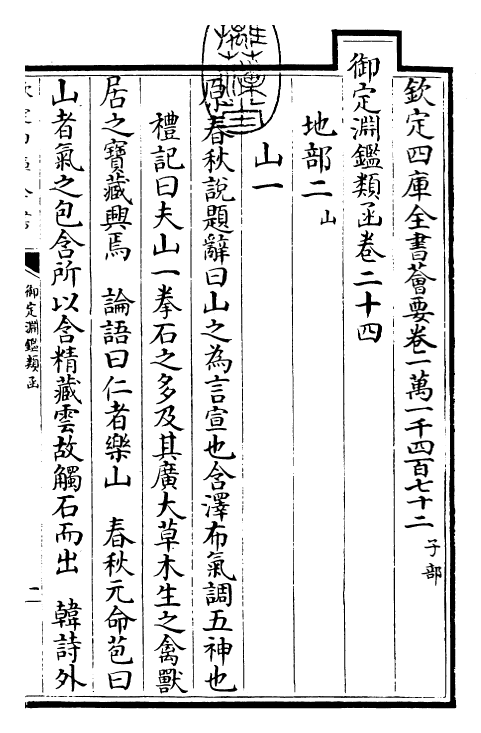 欽定四庫全書薈要卷二萬一千四百七十二 子部
御定淵鑑類函卷二十四
地部二 山
山一
原春秋說題辭曰山之為言宣也含澤布氣調五神也
禮記曰夫山一拳石之多及其廣大草木生之禽獸
居之寶藏興焉 論語曰仁者樂山 春秋元命苞曰
山者氣之包含所以含精藏雲故觸石而出 韓詩外
御定淵鑑類函